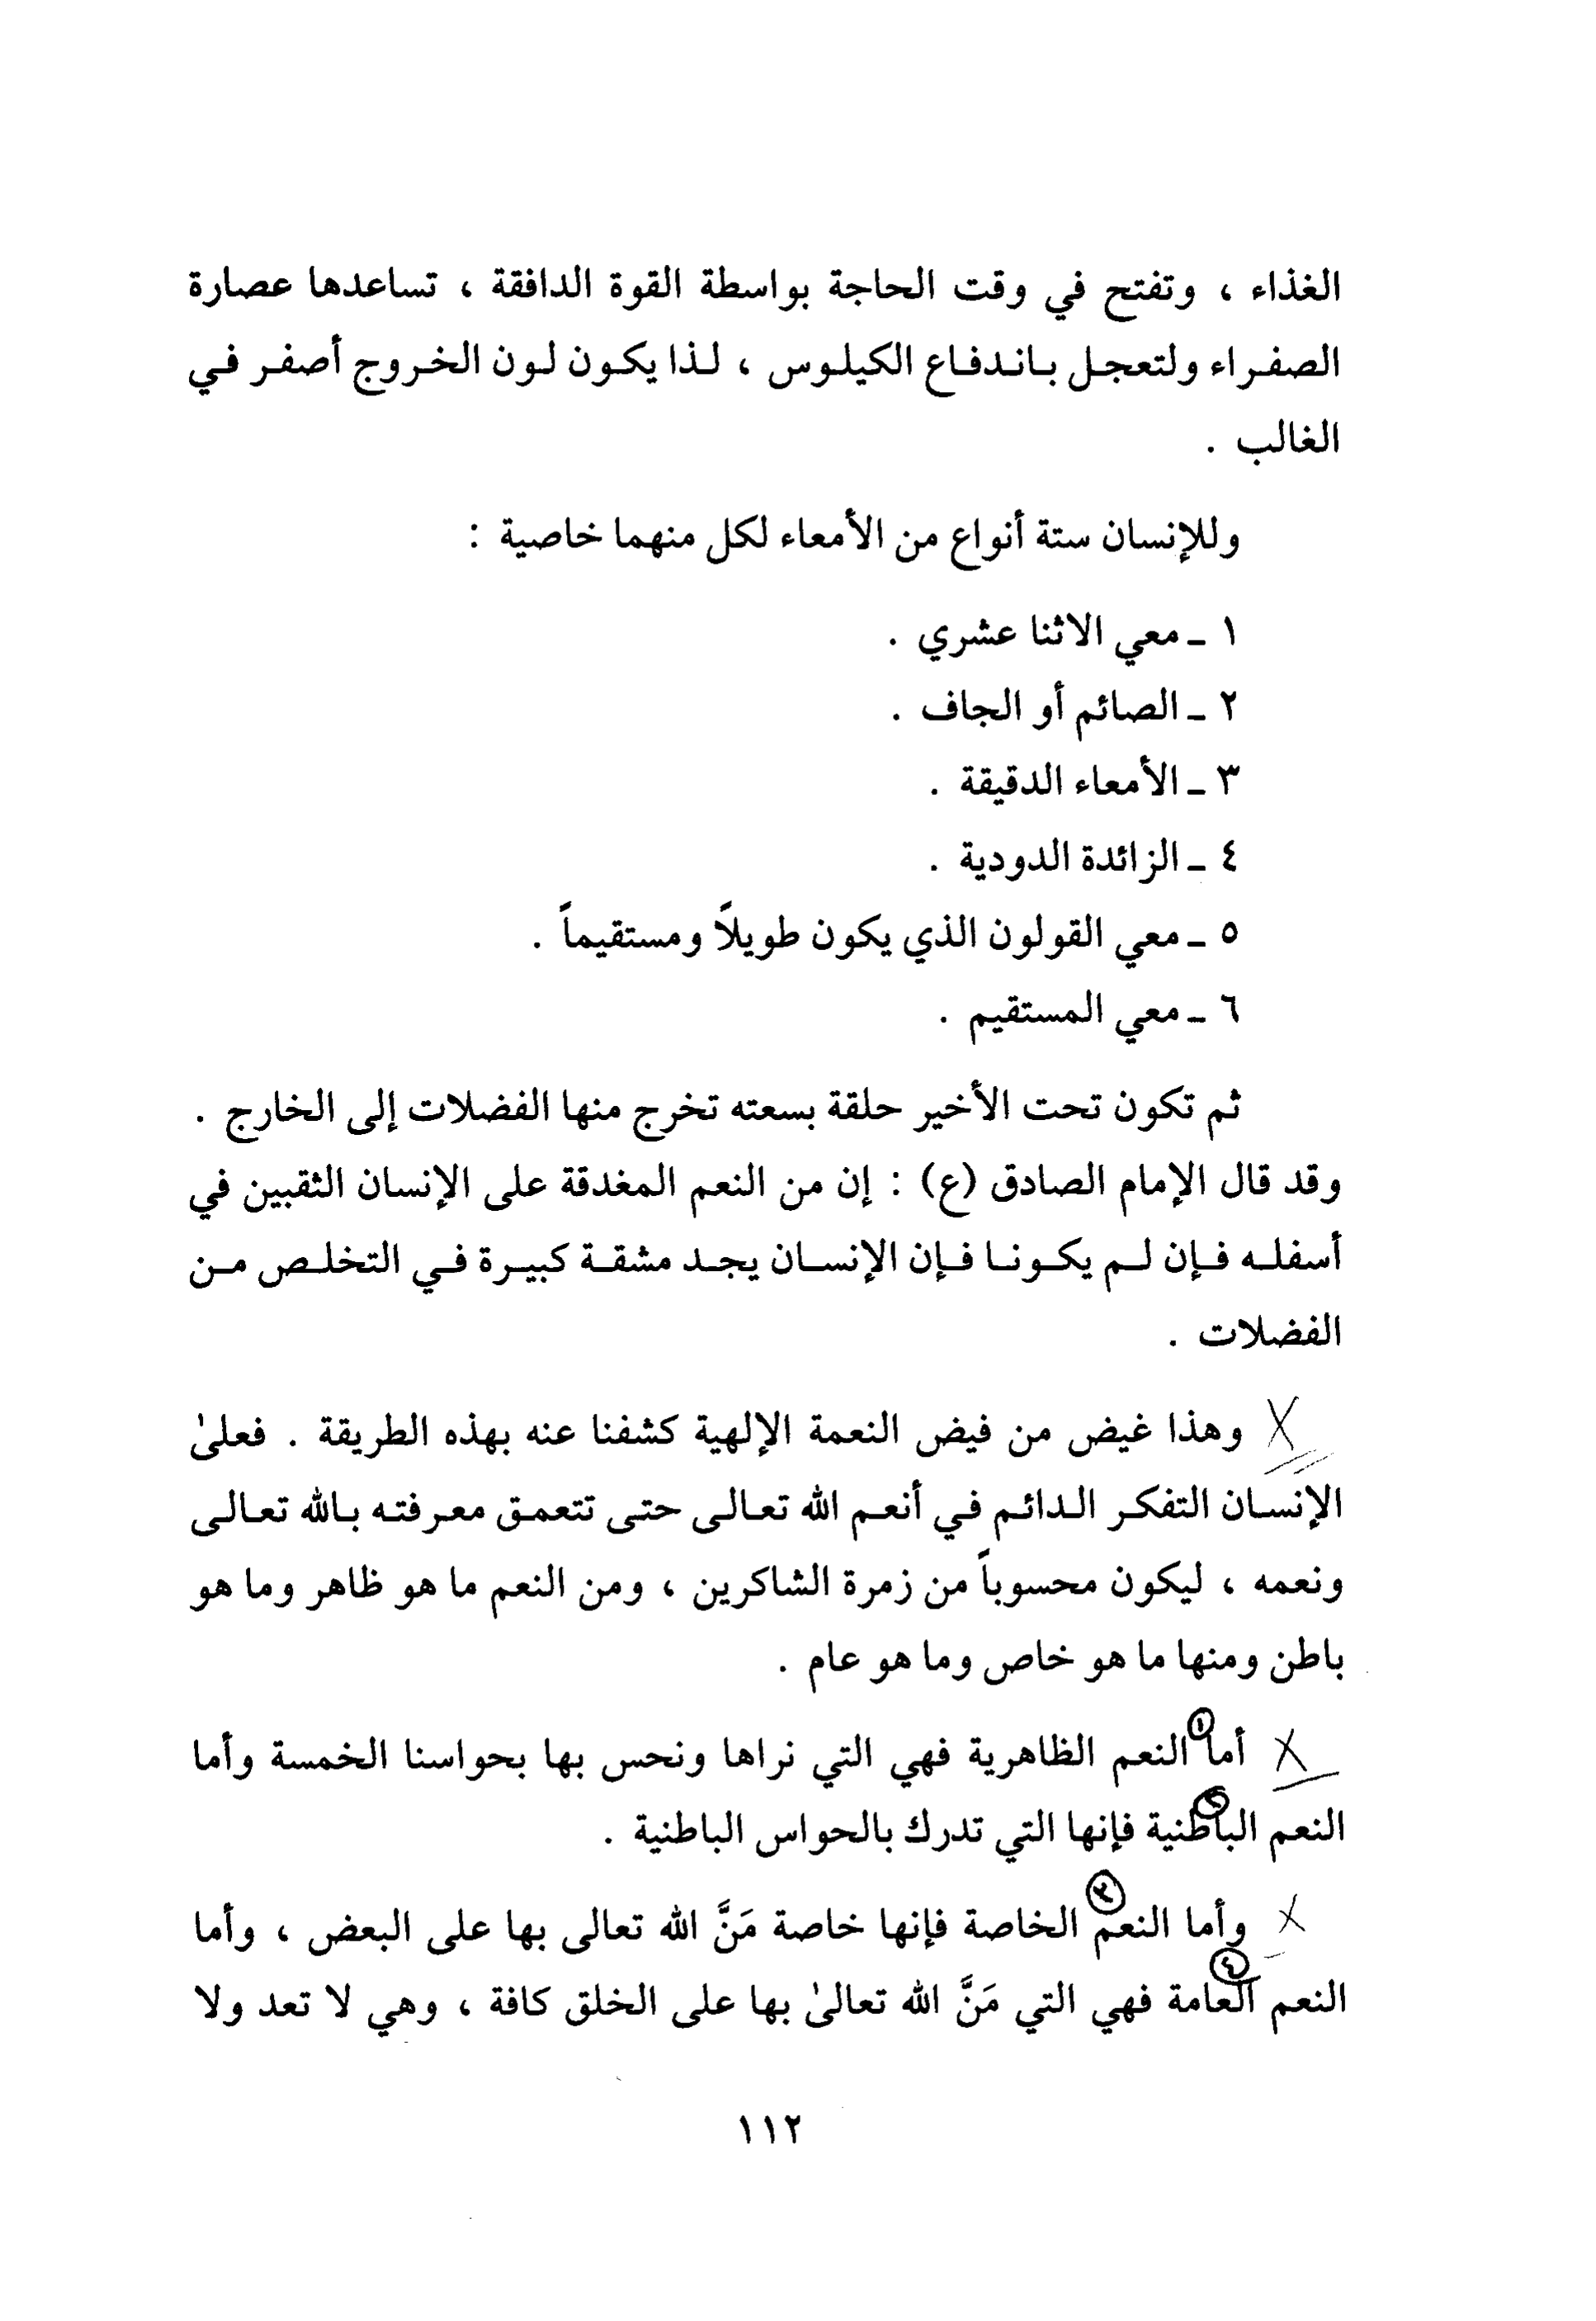 الغذاء ، وتفتح في وقت الحاجة بواسطة القوة الدافقة ، تساعدها عصارة
الصفراء ولتعجل باندفاع الكيلوس ، لذا يكون لون الخروج أصفر في
الغالب .
وللإنسان ستة أنواع من الأمعاء لكل منهما خاصية :
١ - معي الاثنا عشري .
٢ - الصائم أو الجاف .
٣ - الأمعاء الدقيقة .
٤ - الزائدة الدودية .
٥ - معي القولون الذي يكون طويلاً ومستقيماً .
٦ - معي المستقيم .
ثم تكون تحت الأخير حلقة بسعته تخرج منها الفضلات إلى الخارج .
وقد قال الإمام الصادق (ع) : إن من النعم المغدقة على الإنسان الثقبين في
أسفله فإن لم يكونا فإن الإنسان يجد مشقة كبيرة في التخلص من
الفضلات .
X وهذا غيض من فيض النعمة الإلهية كشفنا عنه بهذه الطريقة . فعلىٰ
الإنسان التفكر الدائم في أنعم الله تعالى حتى تتعمق معرفته بالله تعالى
ونعمه ، ليكون محسوباً من زمرة الشاكرين ، ومن النعم ما هو ظاهر وما هو
باطن ومنها ما هو خاص وما هو عام .
١
X أما النعم الظاهرية فهي التي نراها ونحس بها بحواسنا الخمسة وأما
٢
النعم الباطنية فإنها التي تدرك بالحواس الباطنية .
٣
X وأما النعم الخاصة فإنها خاصة مَنَّ الله تعالى بها على البعض ، وأما
٤
النعم العامة فهي التي مَنَّ الله تعالىٰ بها على الخلق كافة ، وهي لا تعد ولا
١١٢